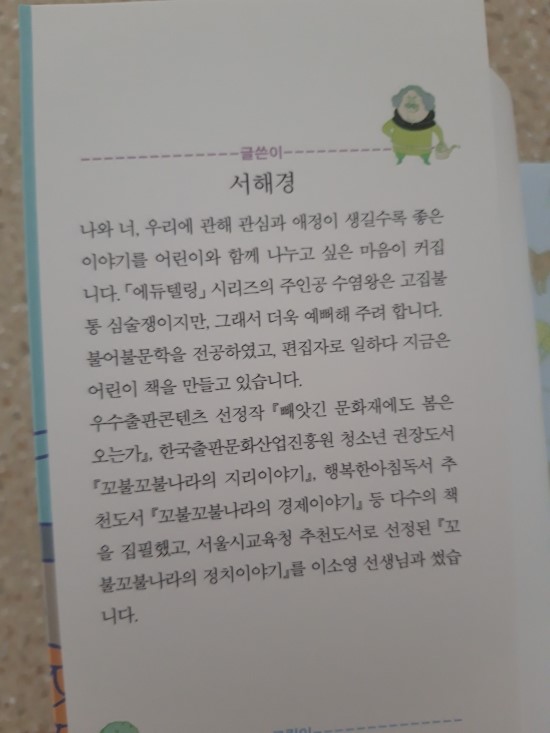 글쓴이
서해경
나와 너, 우리에 관해 관심과 애정이 생길수록 좋은
이야기를 어린이와 함께 나누고 싶은 마음이 커집
니다. 「에듀텔링」 시리즈의 주인공 수염왕은 고집불
통 심술쟁이지만, 그래서 더욱 예뻐해 주려 합니다.
불어불문학을 전공하였고, 편집자로 일하다 지금은
어린이 책을 만들고 있습니다.
우수출판콘텐츠 선정작 『빼앗긴 문화재에도 봄은
오는가』, 한국출판문화산업진흥원 청소년 권장도서
『꼬불꼬불나라의 지리이야기』, 행복한아침독서 추
천도서 『꼬불꼬불나라의 경제이야기』 등 다수의 책
을 집필했고, 서울시교육청 추천도서로 선정된 『꼬
불꼬불나라의 정치이야기』를 이소영 선생님과 썼습
니다.